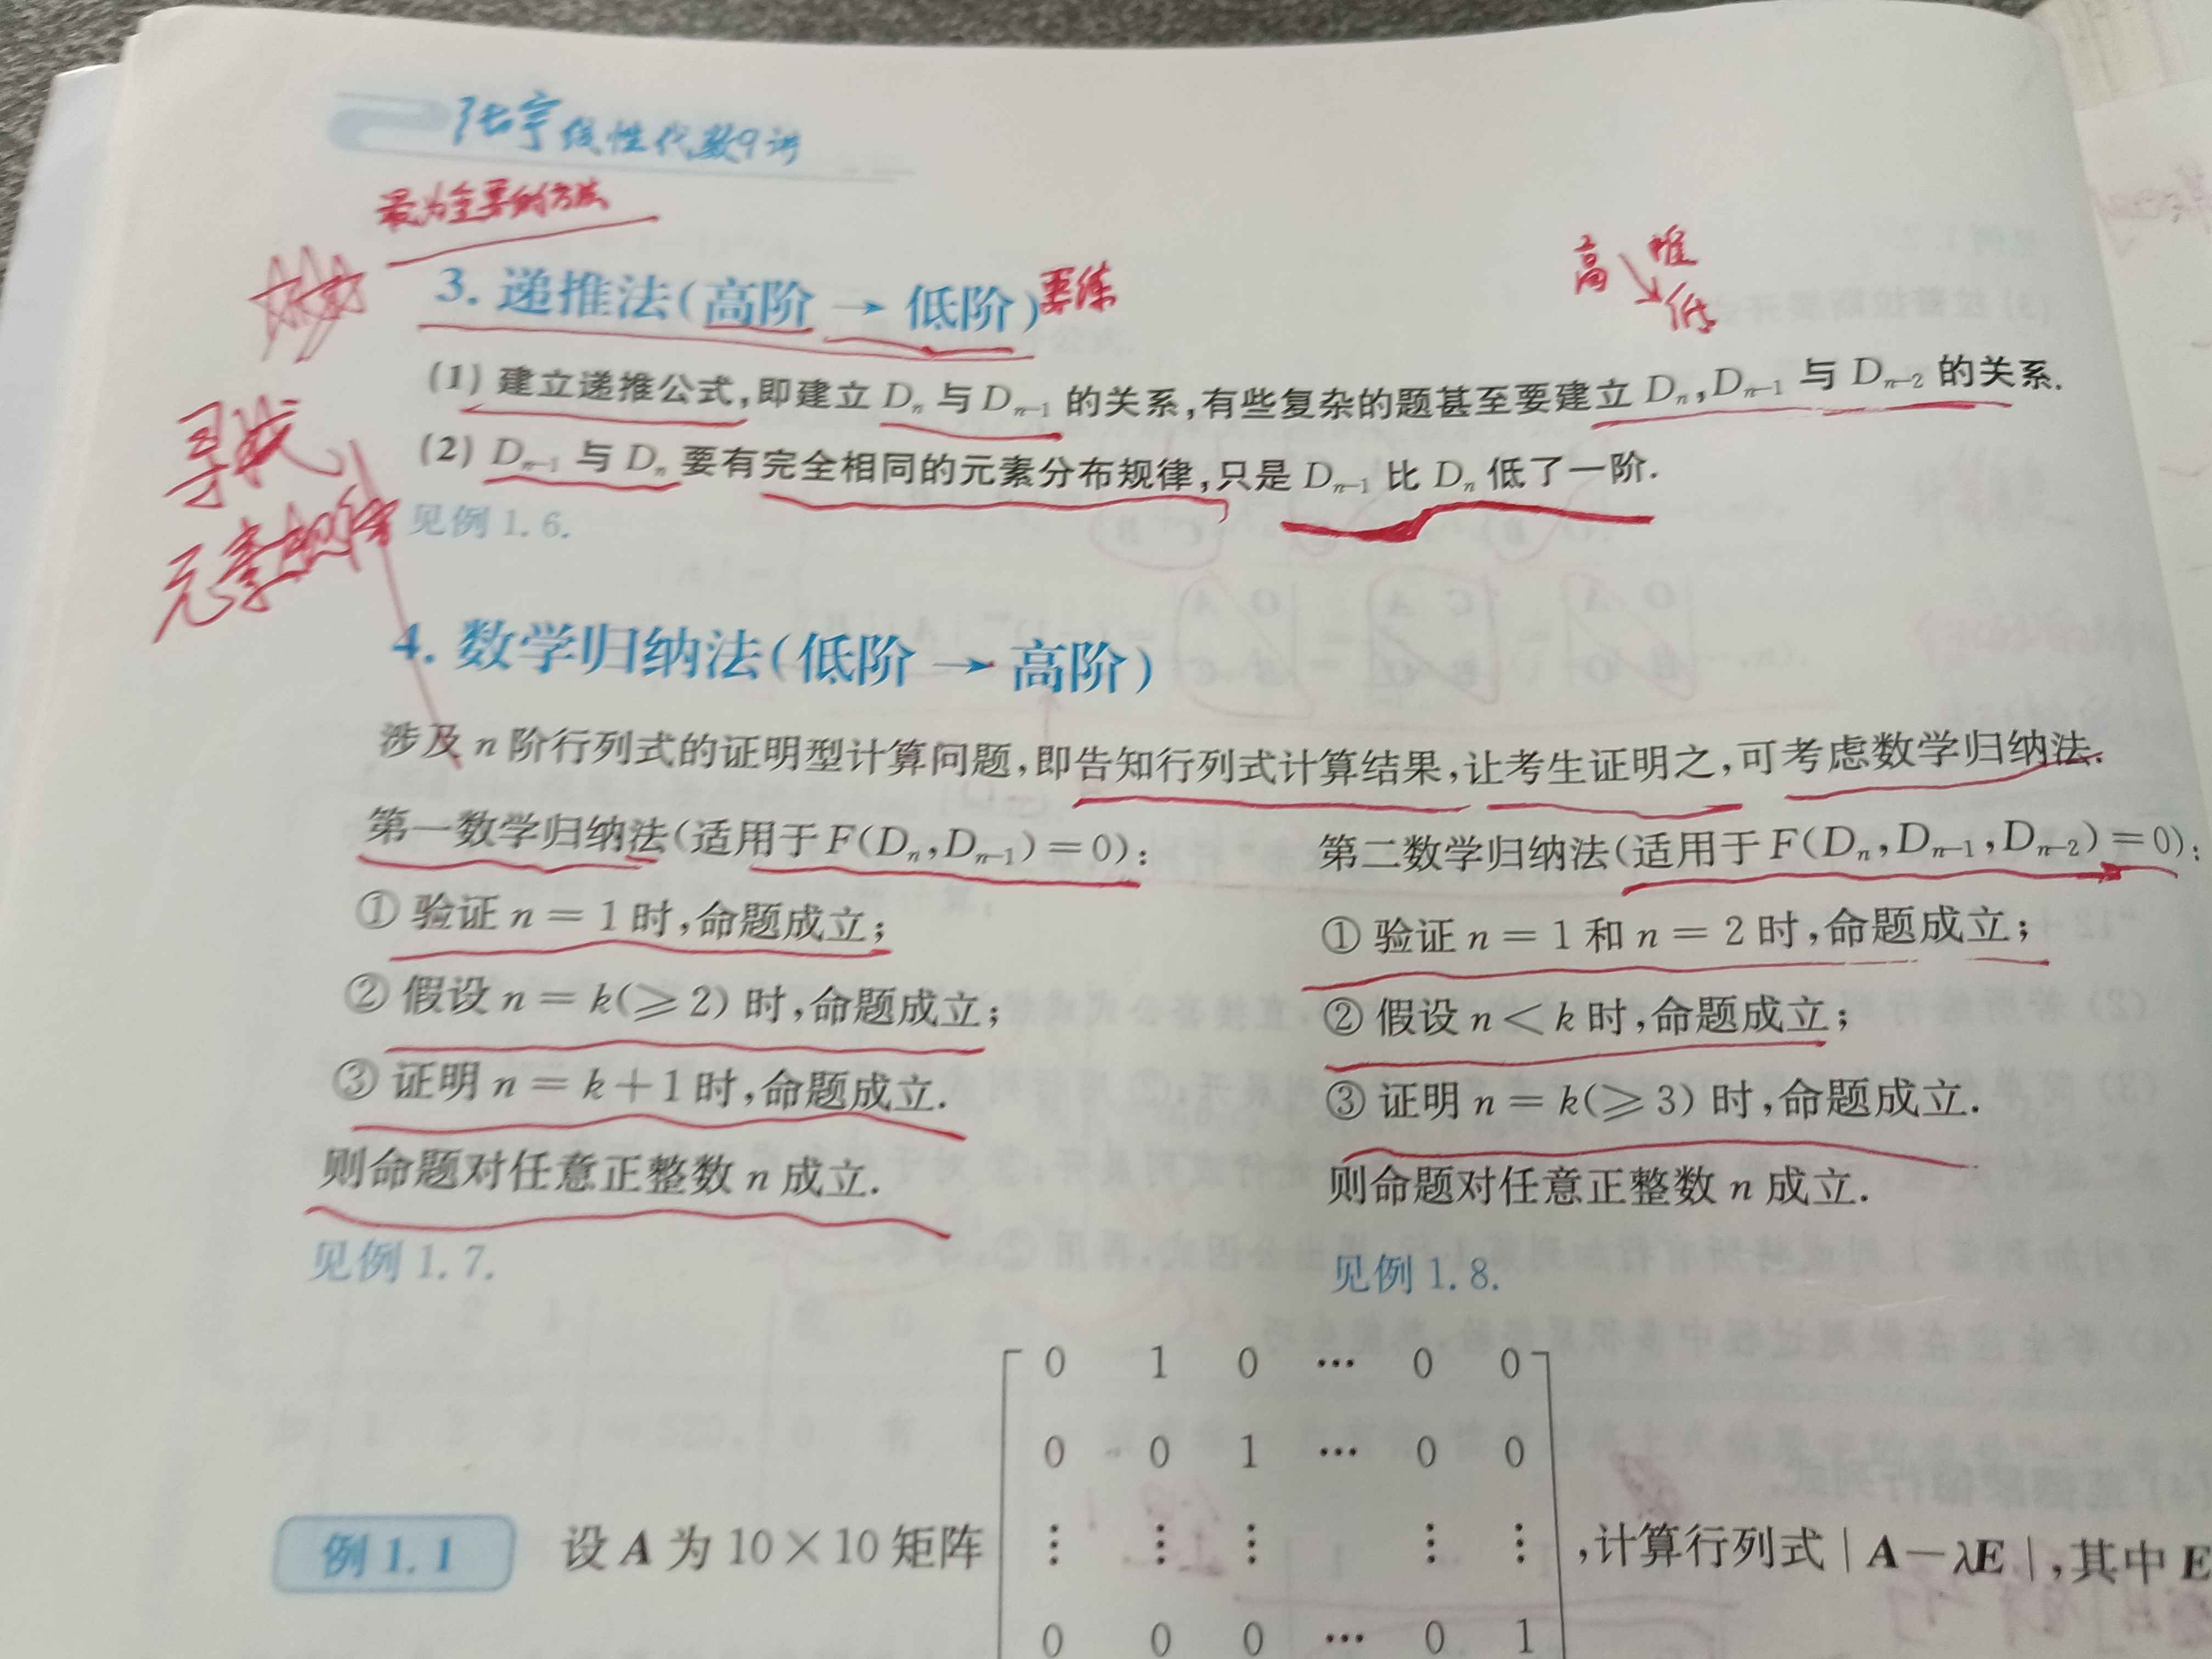 张宇线性代数9讲
最为重要的方法
3. 递推法(高阶 → 低阶)要练
高 推 低
(1) 建立递推公式,即建立 Dₙ 与 Dₙ₋₁ 的关系,有些复杂的题甚至要建立 Dₙ,Dₙ₋₁ 与 Dₙ₋₂ 的关系.
(2) Dₙ₋₁ 与 Dₙ 要有完全相同的元素分布规律,只是 Dₙ₋₁ 比 Dₙ 低了一阶.
寻找
元素规律
见例 1.6.
4. 数学归纳法(低阶 → 高阶)
涉及 n 阶行列式的证明型计算问题,即告知行列式计算结果,让考生证明之,可考虑数学归纳法.
第一数学归纳法(适用于 F(Dₙ,Dₙ₋₁)=0):
① 验证 n = 1 时,命题成立;
② 假设 n = k(⩾2) 时,命题成立;
③ 证明 n = k+1 时,命题成立.
则命题对任意正整数 n 成立.
见例 1.7.
第二数学归纳法(适用于 F(Dₙ,Dₙ₋₁,Dₙ₋₂)=0):
① 验证 n = 1 和 n = 2 时,命题成立;
② 假设 n < k 时,命题成立;
③ 证明 n = k(⩾3) 时,命题成立.
则命题对任意正整数 n 成立.
见例 1.8.
0 1 0 ⋯ 0 0
0 0 1 ⋯ 0 0
⋮ ⋮ ⋮ ⋮ ⋮
例 1.1 设 A 为 10×10 矩阵 ,计算行列式 | A−λE |,其中 E
0 0 0 ⋯ 0 1